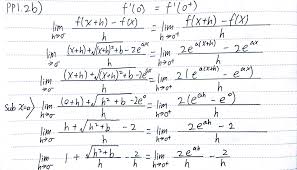 PP1.2b) f'(0) = f'(0⁺)
lim h→0⁻ f(x+h) - f(x) / h = lim h→0⁺ f(x+h) - f(x) / h
lim h→0⁻ (x+h)+√(x+h)²+b - 2e^ax / h = lim h→0⁺ 2e^a(x+h) - 2e^ax / h
lim h→0⁻ (x+h)+√(x+h)²+b - 2e^ax / h = lim h→0⁺ 2(e^a(x+h) - e^ax) / h
sub x=0> lim h→0⁻ (0+h)+√h²+b - 2e⁰ / h = lim h→0⁺ 2(e^ah - e⁰) / h
lim h→0⁻ h+√h²+b - 2 / h = lim h→0⁺ 2e^ah - 2 / h
lim h→0⁻ 1 + √h²+b / h - 2 / h = lim h→0⁺ 2e^ah / h - 2 / h